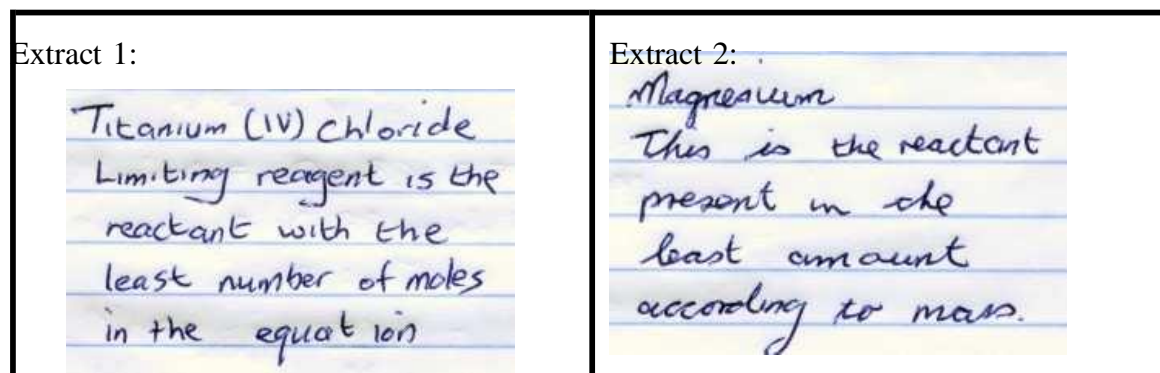 Extract 1:
Titanium (IV) Chloride
Limiting reagent is the
reactant with the
least number of moles
in the equation
Extract 2:
Magnesium
This is the reactant
present in the
least amount
according to mass.